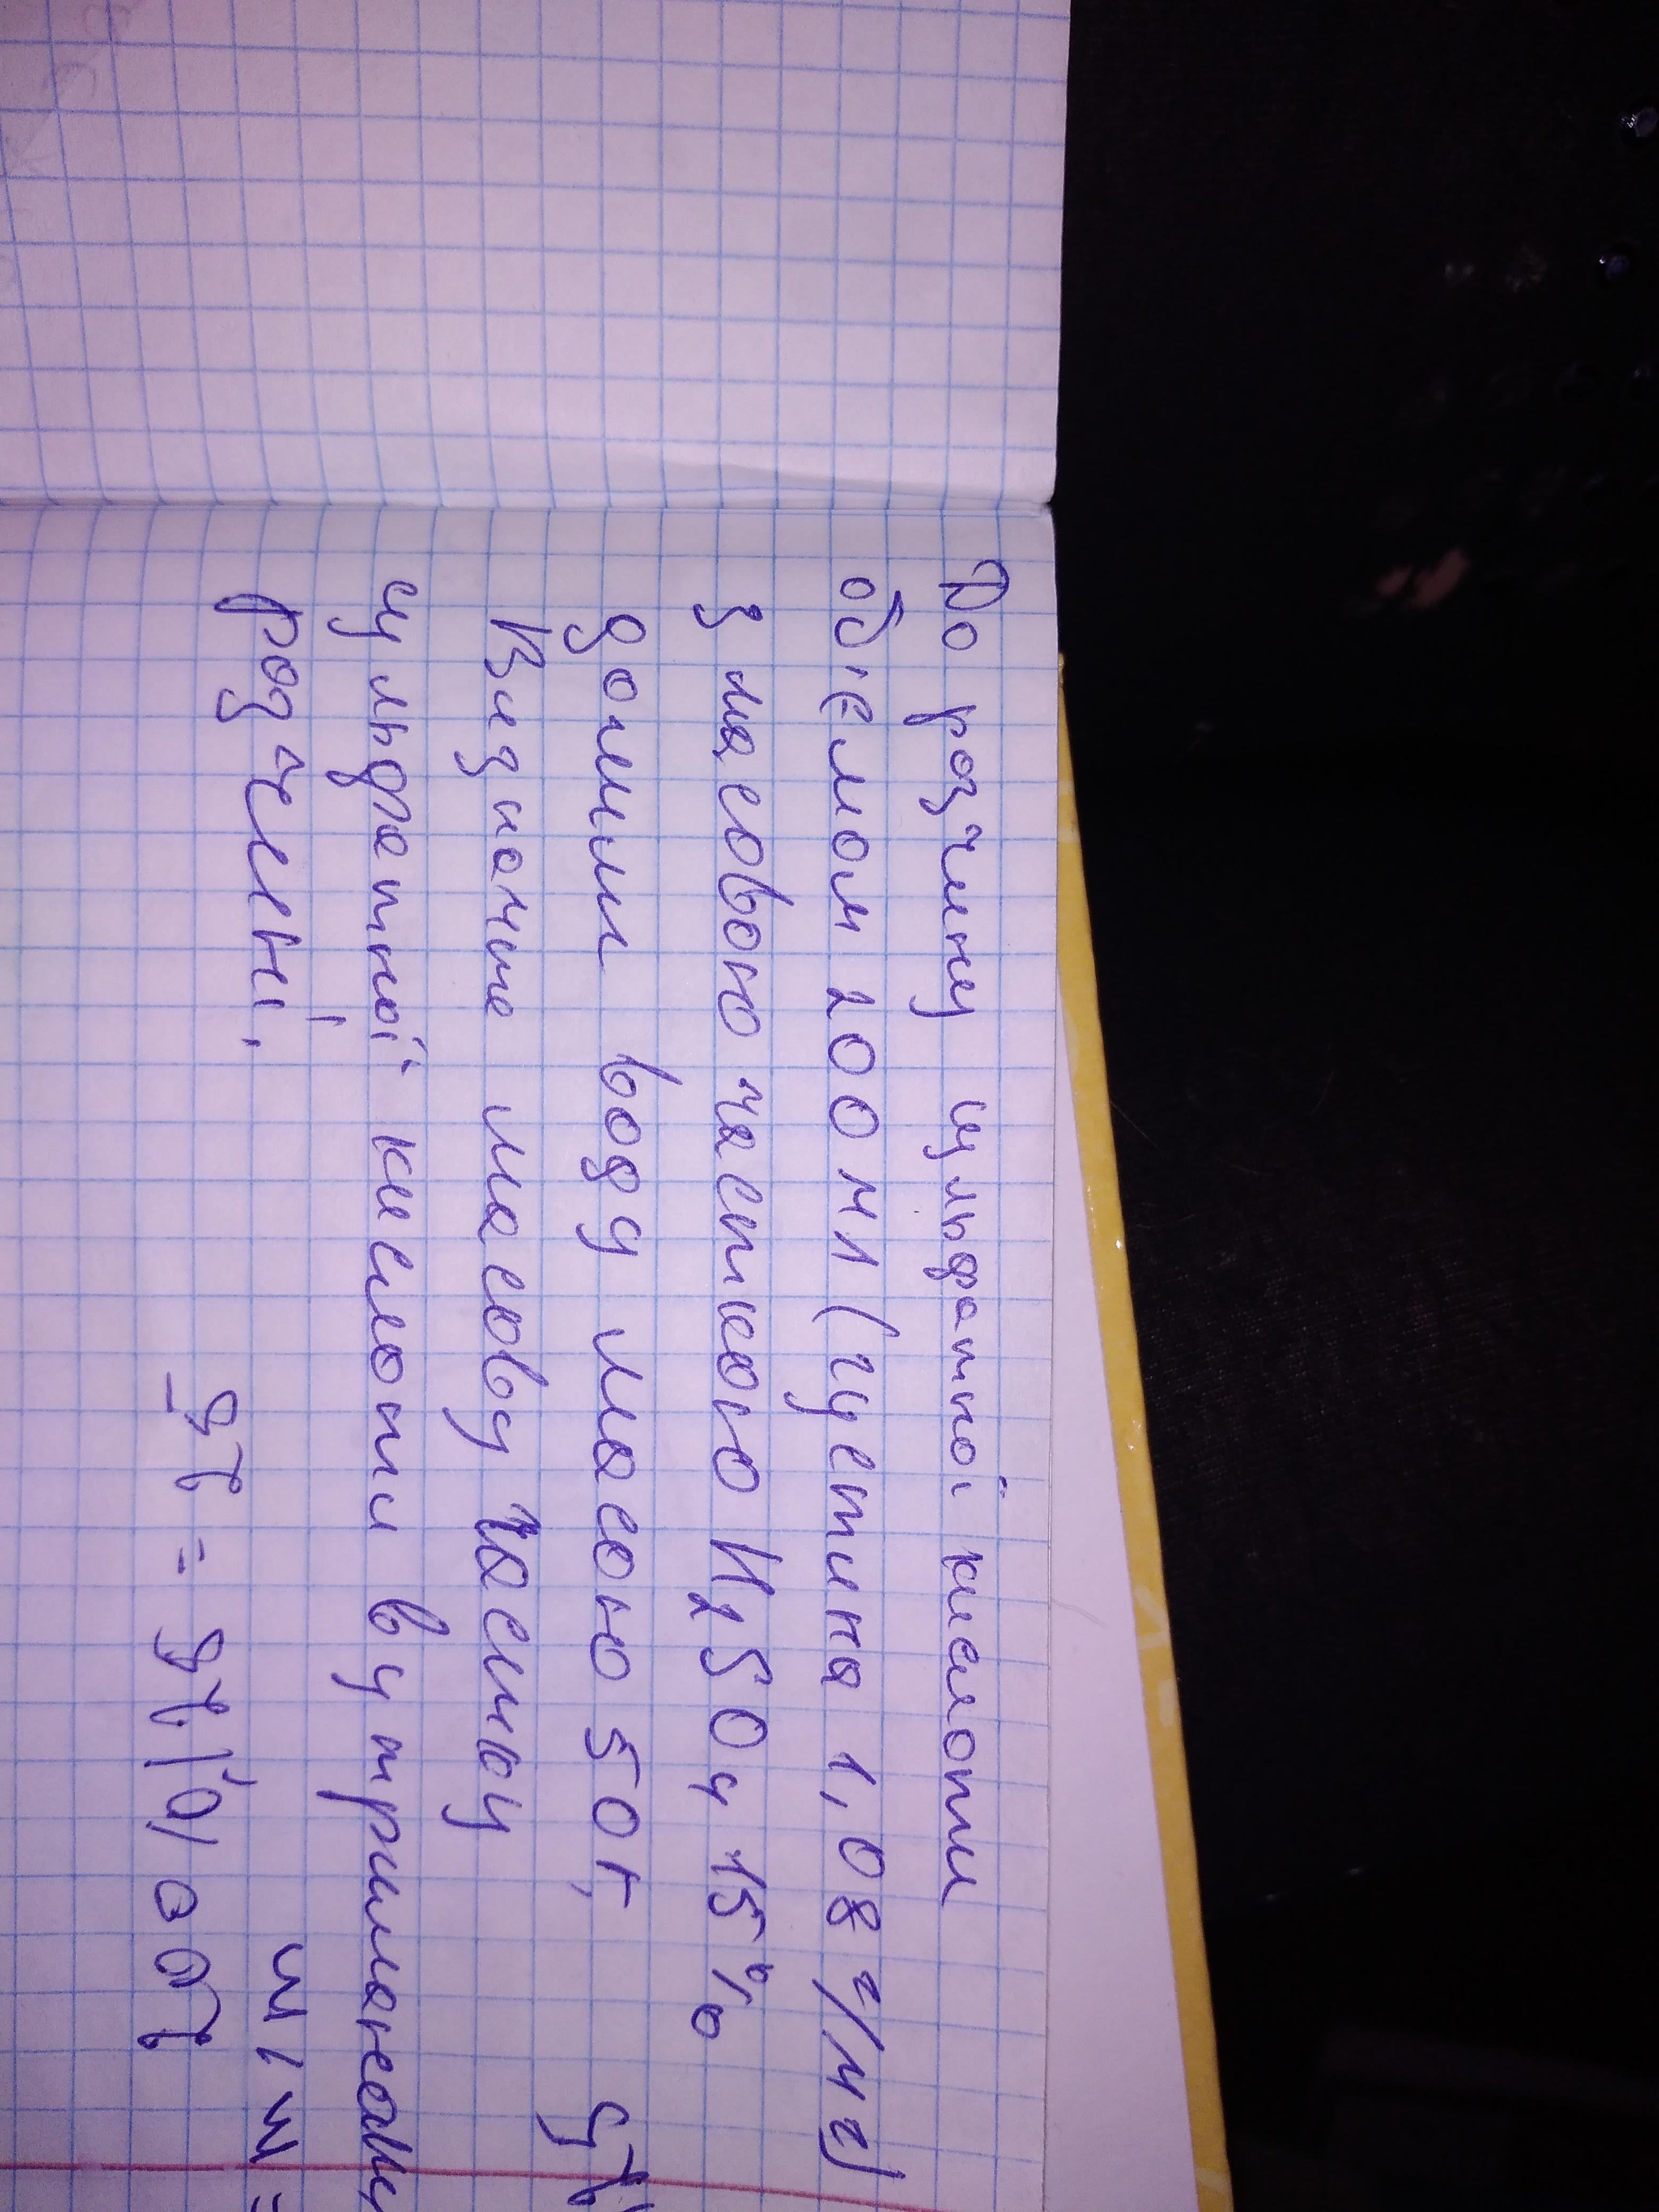 До розчину сульфатної кислоти
об'ємом 200 мл (густина 1,08 г/мг)
з масовою часткою H2SO4 15%
долили воду масою 50 г,
Визначте масову частку
сульфатної кислоти в утриманому
розчені,